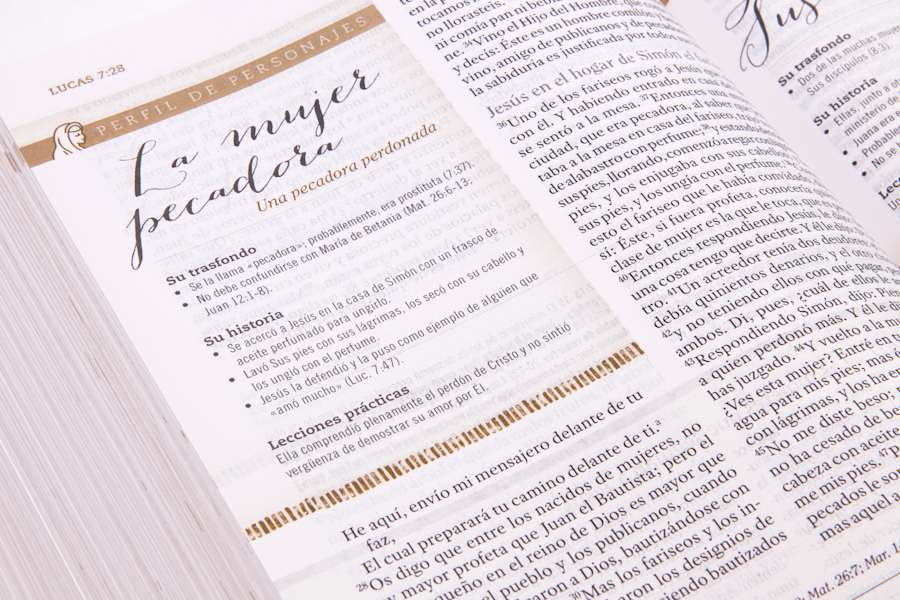 LUCAS 7:28
PERFIL DE PERSONAJES
La mujer
pecadora
Una pecadora perdonada
Su trasfondo
• Se la llama «pecadora»; probablemente, era prostituta (7:37).
• No debe confundirse con María de Betania (Mat. 26:6-13;
Juan 12:1-8).
Su historia
• Se acercó a Jesús en la casa de Simón con un frasco de
aceite perfumado para ungirlo.
• Lavó Sus pies con sus lágrimas, los secó con su cabello y
los ungió con el perfume.
• Jesús la defendió y la puso como ejemplo de alguien que
«amó mucho» (Luc. 7:47).
Lecciones prácticas
Ella comprendió plenamente el perdón de Cristo y no sintió
vergüenza de demostrar su amor por Él.
He aquí, envío mi mensajero delante de tu
faz,
El cual preparará tu camino delante de ti.a
28Os digo que entre los nacidos de mujeres, no
y mayor profeta que Juan el Bautista; pero el
queño en el reino de Dios es mayor que
el pueblo y los publicanos, cuando
aron a Dios, bautizándose con
30Mas los fariseos y los in-
aron los designios de
iendo bautizados
tocamos
no llorasteis.
ni comía pan ni beb
ne. 34Vino el Hijo del Hombre
y decís: Éste es un hombre comilón
vino, amigo de publicanos y de pe
la sabiduría es justificada por todos
Jesús en el hogar de Simón el
36Uno de los fariseos rogó a Jesús que
con él. Y habiendo entrado en casa
se sentó a la mesa. 37Entonces una
ciudad, que era pecadora, al saber
taba a la mesa en casa del fariseo, tra
de alabastro con perfume; 38y estando
sus pies, llorando, comenzó a regar con
pies, y los enjugaba con sus cabello
sus pies, y los ungía con el perfume.
esto el fariseo que le había convidado
sí: Éste, si fuera profeta, conocería
clase de mujer es la que le toca, que
40Entonces respondiendo Jesús, le
una cosa tengo que decirte. Y él le di
tro. 41Un acreedor tenía dos deudor
debía quinientos denarios, y el otro
42y no teniendo ellos con qué pagar, pe
ambos. Di, pues, ¿cuál de ellos le
43Respondiendo Simón, dijo: Pien
a quien perdonó más. Y él le
has juzgado. 44Y vuelto a la mu
¿Ves esta mujer? Entré en tu
agua para mis pies; mas é
con lágrimas, y los ha en
45No me diste beso;
no ha cesado de be
cabeza con aceite
me mis pies.
pecados le so
mas aquel a
Mat. 26:7; Mar. 1
Su trasfondo
• Dos de las muchas muje
Sus discípulos (8:3).
Su historia
• Ellas, junto a o
ministerio de
• Juana era
• Probable
• No se
Lec